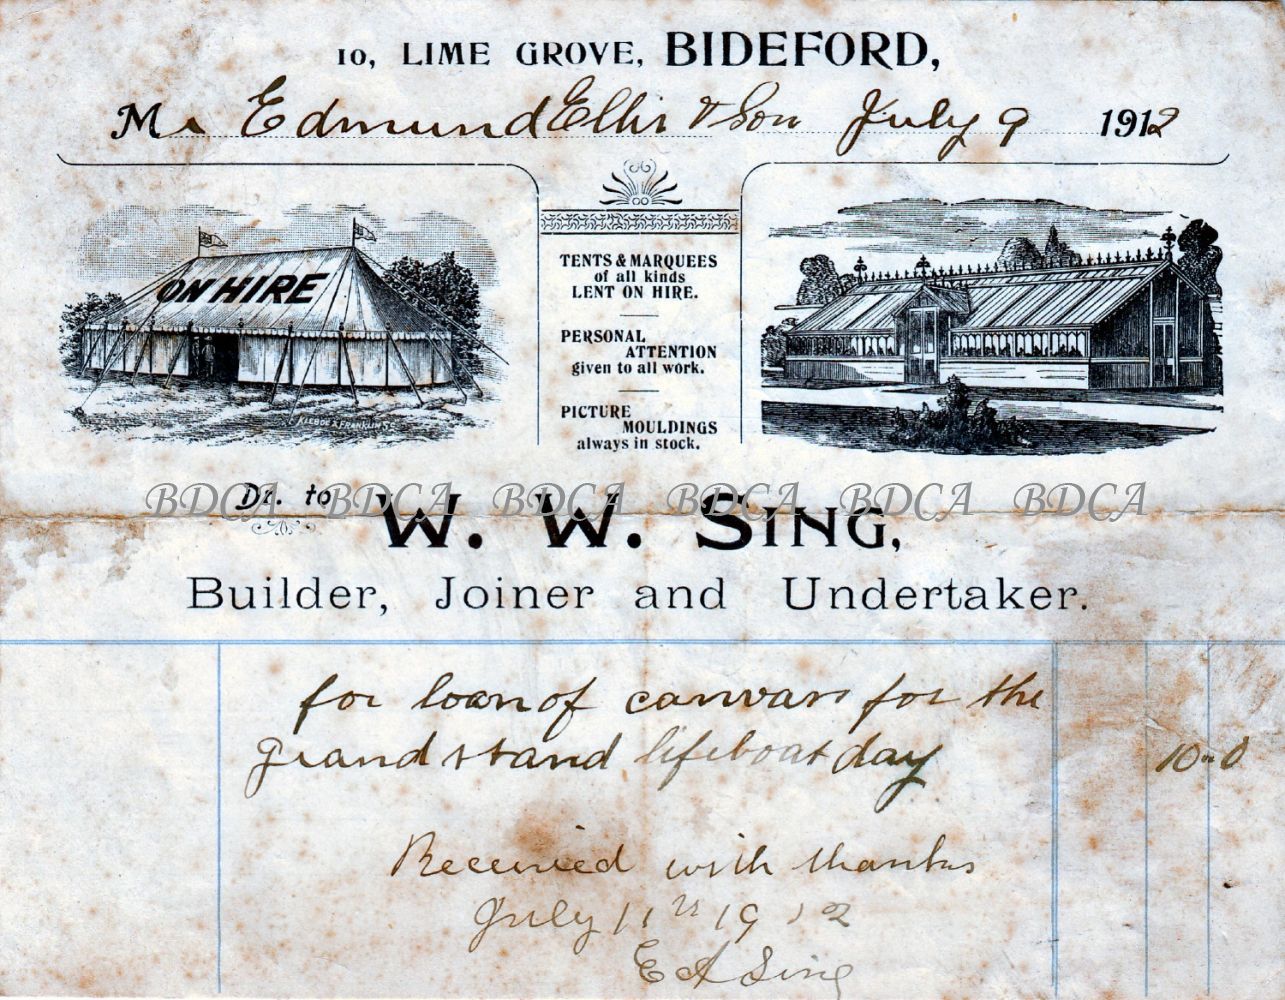 10, LIME GROVE, BIDEFORD,
Mr Edmund Ellis & Son July 9 1912
ON HIRE
TENTS & MARQUEES
of all kinds
LENT ON HIRE.
PERSONAL
ATTENTION
given to all work.
PICTURE
MOULDINGS
always in stock.
Dr. to W. W. SING,
BDCA BDCA BDCA BDCA BDCA BDCA
Builder, Joiner and Undertaker.
for loan of canvas for the
grand stand lifeboat day 10 " 0
Received with thanks
July 11th 1912
E A Sing